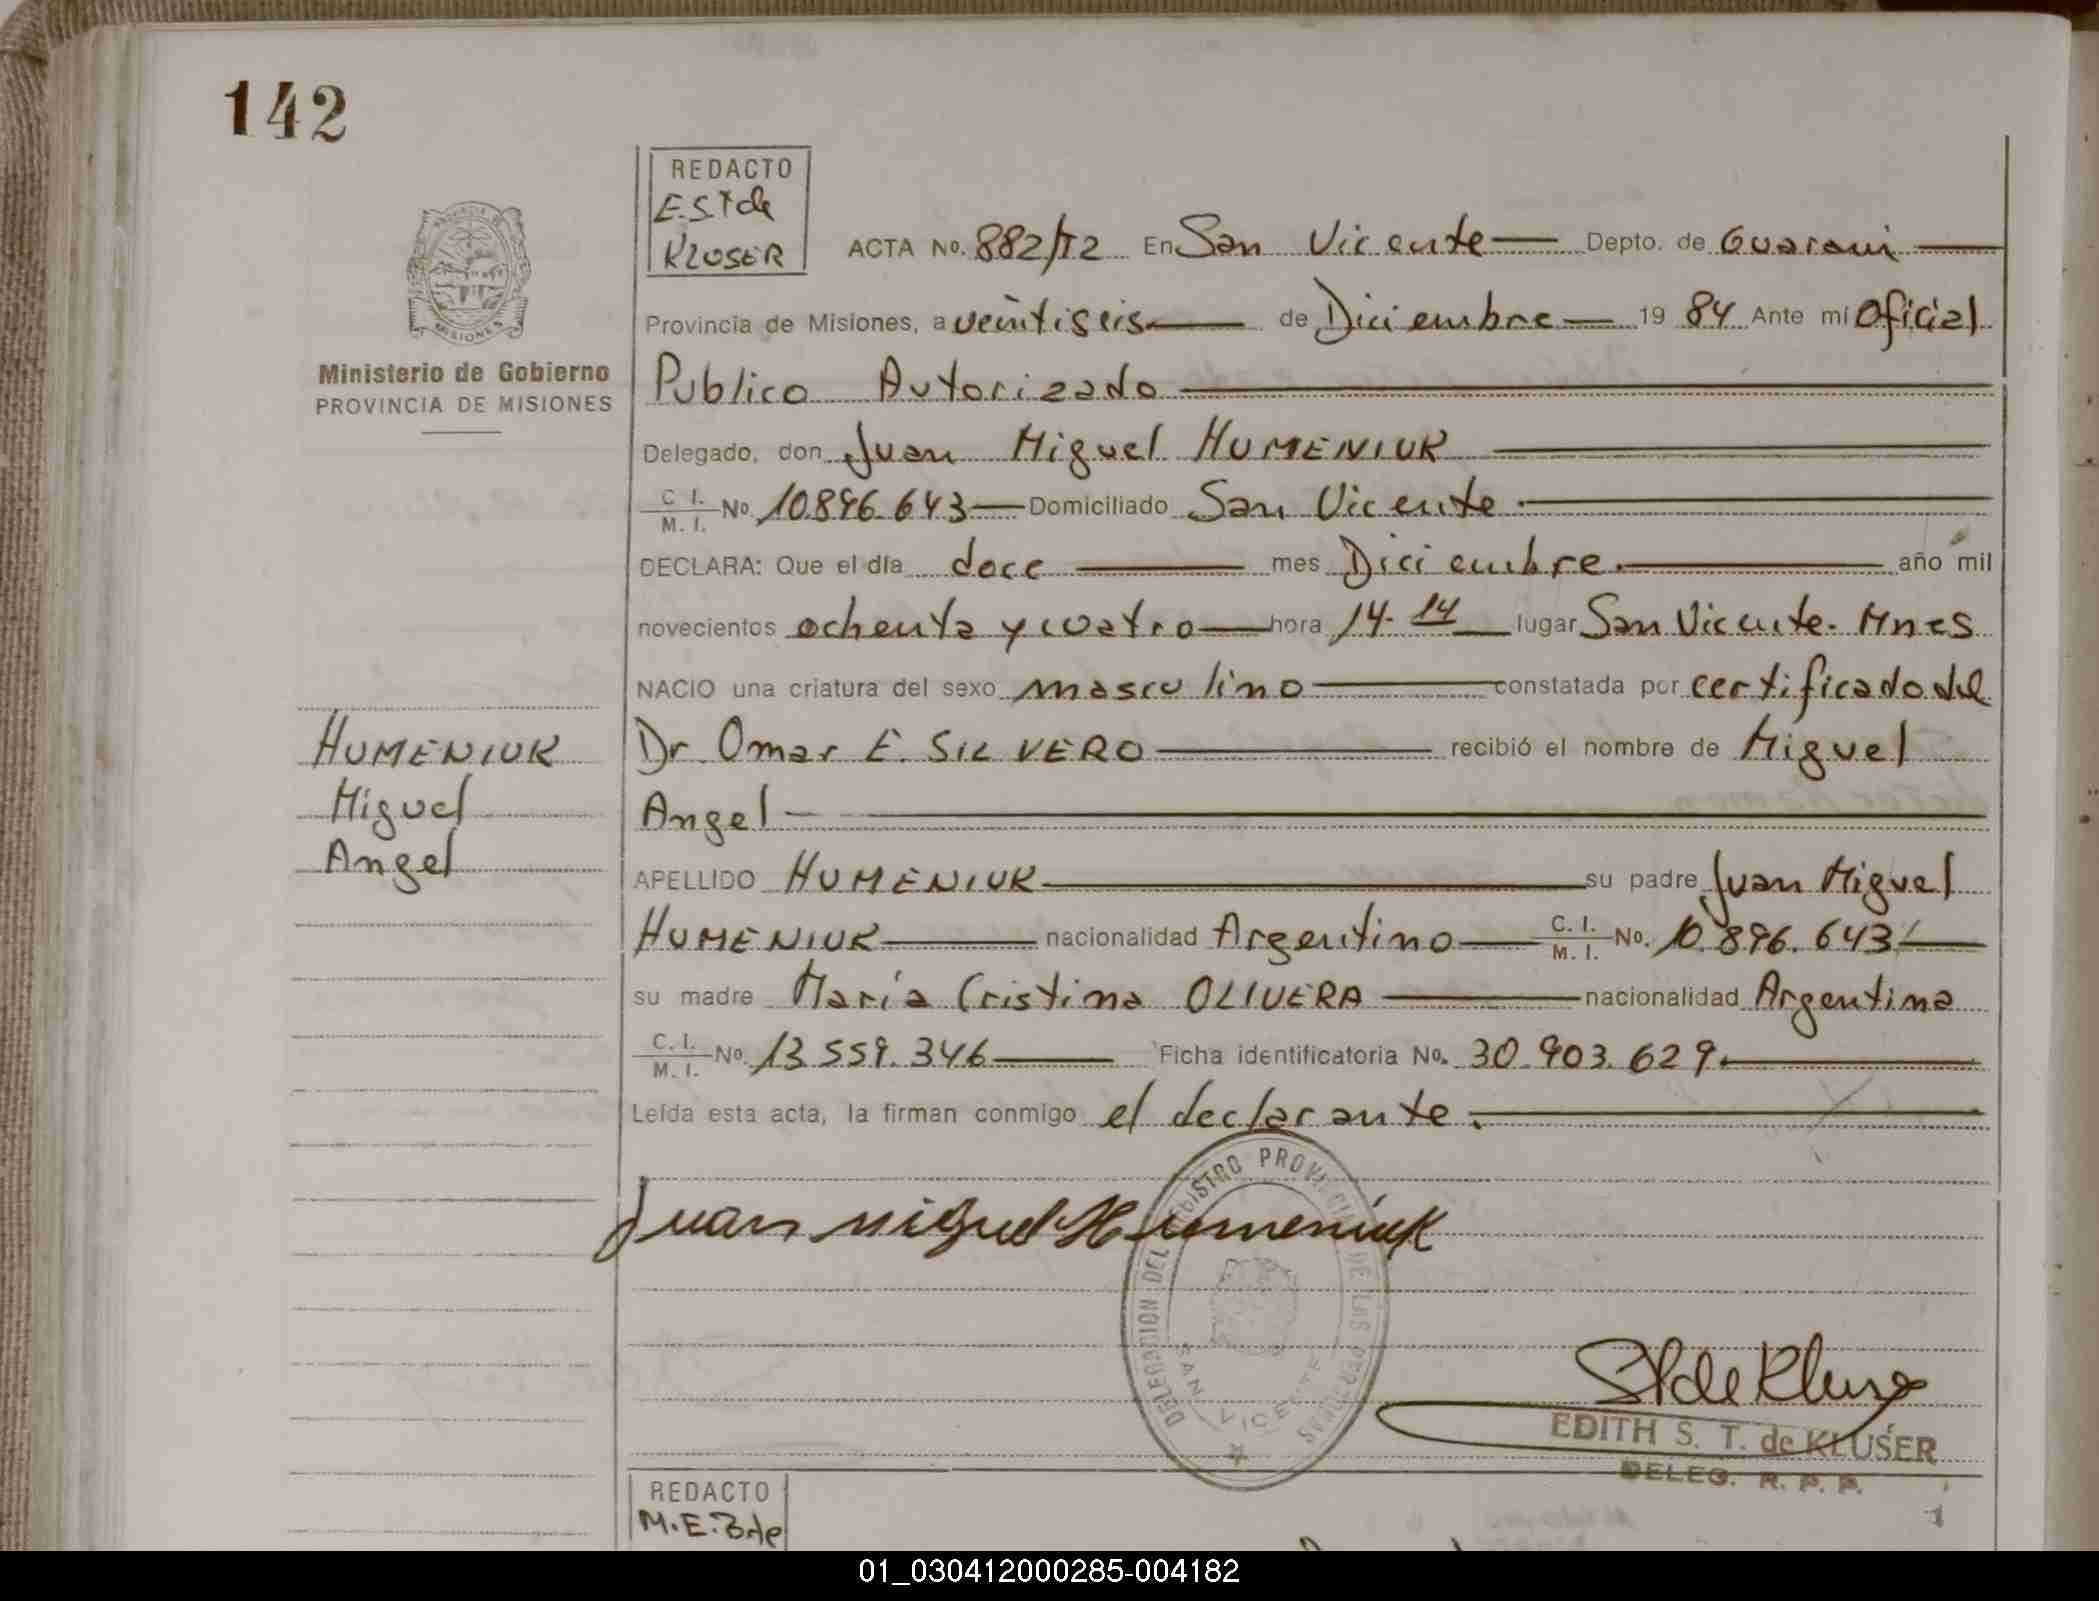 142
REDACTO
E.S.T de
KLUSER
ACTA No. 882/T2 En San Vicente Depto. de Guarani
Provincia de Misiones, a veintiseis de Diciembre 19 84 Ante mi Oficial
Ministerio de Gobierno
PROVINCIA DE MISIONES
Publico Autorizado
Delegado, don Juan Miguel HUMENIUK
C. I. M. I. No. 10.896.643 Domiciliado San Vicente
DECLARA: Que el día doce mes Diciembre. año mil
novecientos ochenta y cuatro hora 14.14 lugar San Vicente. Mnes
NACIO una criatura del sexo masculino constatada por certificado del
HUMENIUK
Miguel
Angel
Dr Omar E. SILVERO recibió el nombre de Miguel
Angel
APELLIDO HUMENIUK su padre Juan Miguel
HUMENIUK nacionalidad Argentino C. I. M. I. No. 10.896.643
su madre María Cristina OLIVERA nacionalidad Argentina
C. I. M. I. No. 13.559.346 Ficha identificatoria No. 30.903.629.
Leída esta acta, la firman conmigo el declarante.
Juan Miguel Humeniuk
DELEGACION DEL REGISTRO PROVINCIAL DE LAS PERSONAS
SAN VICENTE
ST de Kluser
EDITH S. T. de KLUSER
DELEG. R. P. P.
REDACTO
M.E.B de
01_030412000285-004182